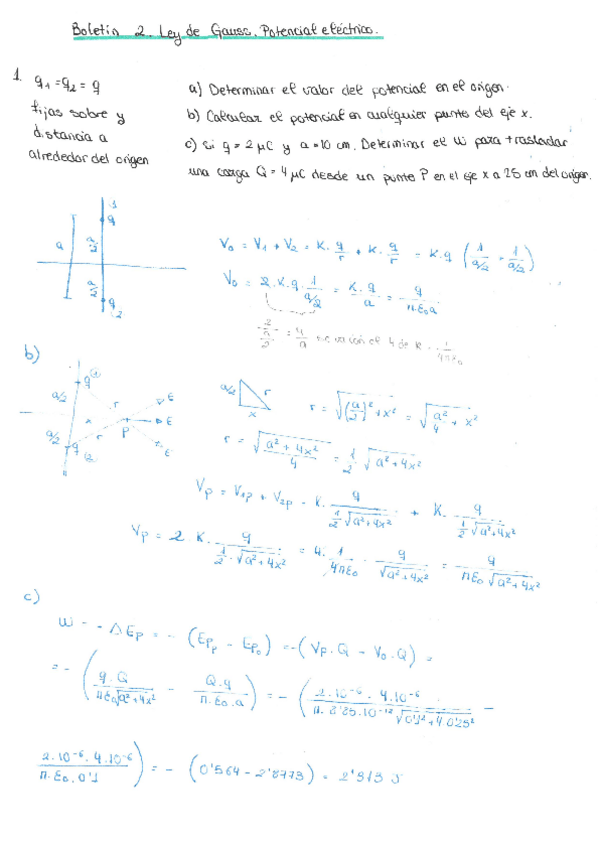 Boletín 2. Ley de Gauss. Potencial eléctrico.
1. q1 = q2 = q
fijas sobre y
distancia a
alrededor del origen
a) Determinar el valor del potencial en el origen.
b) Calcular el potencial en cualquier punto del eje x.
c) Si q = 2 μC y a = 10 cm. Determinar el W para trasladar
una carga Q = 4 μC desde un punto P en el eje x a 25 cm del origen.
1
q
a
a/2
a/2
q
2
V0 = V1 + V2 = K. q/r + K. q/r = K.q (1/(a/2) + 1/(a/2))
V0 = 2.K.q. 1/(a/2) = K.q/a = q/(π.ε0.a)
2/(a/2) = 4/a el 4 de K = 1/(4πε0)
b)
a/2 q (1) r E
x P E
a/2 q (2) r E
a/2 r x
r = √((a/2)² + x²) = √(a²/4 + x²)
r = √((a² + 4x²)/4) = 1/2 √(a² + 4x²)
Vp = V1p + V2p = K. q/(1/2 √(a² + 4x²)) + K. q/(1/2 √(a² + 4x²))
Vp = 2. K. q/(1/2 . √(a² + 4x²)) = 4. 1/(4πε0) . q/√(a² + 4x²) = q/(πε0 √(a² + 4x²))
c)
W = - ΔEp = - (EpP - Ep0) = -(Vp.Q - V0.Q) =
= - (q.Q/(πε0√(a² + 4x²)) - Q.q/(π.ε0.a)) = - (2.10⁻⁶ . 4.10⁻⁶/(π. 8'85.10⁻¹² √(0'1² + 4.0'25²)) -
2.10⁻⁶. 4.10⁻⁶/(π.ε0.0'1)) = - (0'564 - 2'8773) = 2'313 J